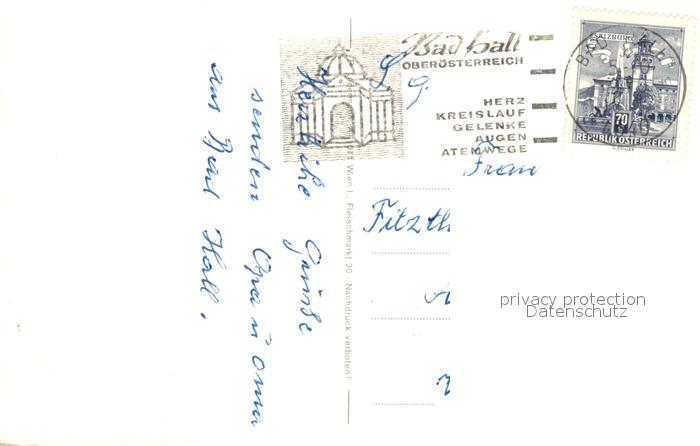 Bad Hall
OBERÖSTERREICH
HERZ
KREISLAUF
GELENKE
AUGEN
ATEMWEGE
SALZBURG
BAD HALL
70
REPUBLIK ÖSTERREICH
Herzliche Grüße
senden Opa u Oma
aus Bad Hall.
Wien I., Fleischmarkt 20 · Nachdruck verboten!
Frau
Fitzth
A
privacy protection
Datenschutz